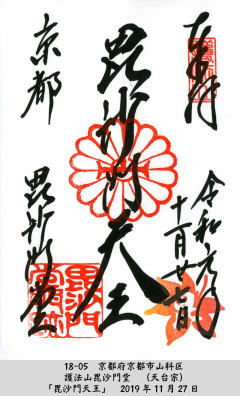 奉拝
令和元年
十一月廿七日
毘沙門天王
京都
毘沙門堂
毘沙門
18-05 京都府京都市山科区
護法山毘沙門堂 （天台宗）
「毘沙門天王」 2019年11月27日